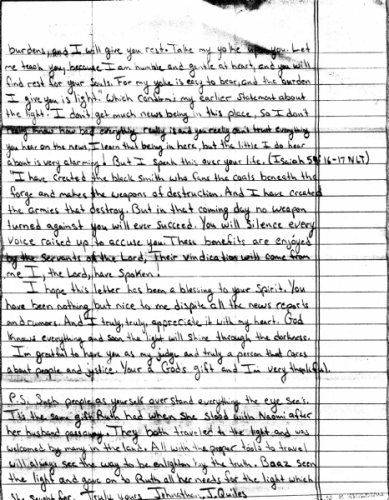 burdens, and I will give you rest. Take my yoke upon you. Let
me teach you, because I am humble and gentle at heart, and you will
find rest for your souls. For my yoke is easy to bear, and the burden
I give you is light." Which confirms my earlier statement about
the light. I don't get much news being in this place, So I don't
really know how bad everything really is and you really can't trust everything
you hear on the news I learn that being in here, but the little I do hear
about is very alarming! But I speak this over your life. (Isaiah 54:16-17 NLT)
"I have created the black smith who fans the coals beneath the
forge and makes the weapons of destruction. And I have created
the armies that destroy. But in that coming day no weapon
turned against you will ever succeed. You will silence every
voice raised up to accuse you. These benefits are enjoyed
by the servants of the Lord, Their vindication will come from
me I, the Lord, have spoken!
I hope this letter has been a blessing to your Spirit. You
have been nothing but nice to me dispite all the news reports
and rumors. And I truly, truly, appreciate it with my heart. God
knows everything and soon the light will shine through the darkness.
Im grateful to have you as my judge and truly a person that cares
about people and justice. Your a Gods gift and Im very thankful.
P.S. people as yourself overstand everything the eye see's.
Tis the same gift Ruth had when she stood with Naomi after
her husband passaway. They both traveled to the light and was
welcomed by many in the land. All with the proper tools to travel
will always see the way to be enlighten by the truth. Boaz seen
the light and gave on to Ruth all her needs for the light which
She sought for. Truly yours, Johnathan J. Quiles